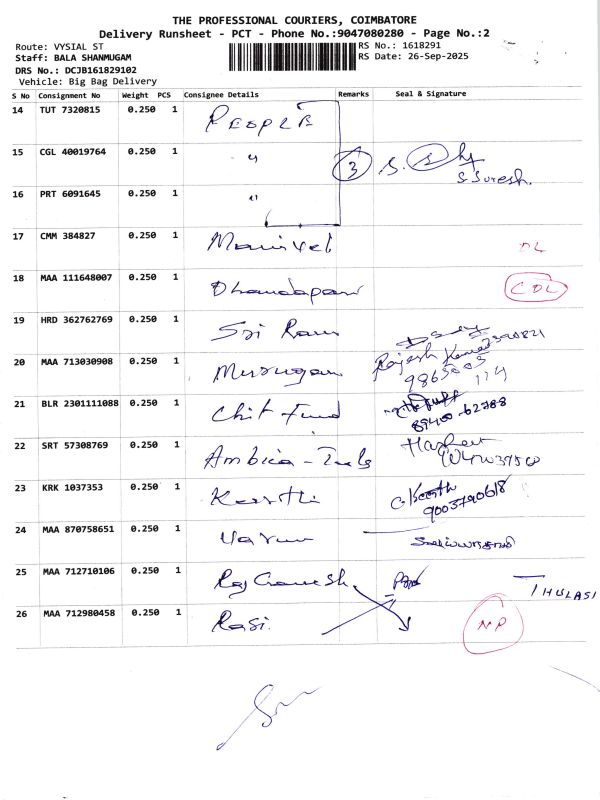 THE PROFESSIONAL COURIERS, COIMBATORE
Delivery Runsheet - PCT - Phone No.:9047080280 - Page No.:2
Route: VYSIAL ST RS No.: 1618291
Staff: BALA SHANMUGAM RS Date: 26-Sep-2025
DRS No.: DCJB161829102
Vehicle: Big Bag Delivery
S No Consignment No Weight PCS Consignee Details Remarks Seal & Signature
14 TUT 7320815 0.250 1 PEOPLE
15 CGL 40019764 0.250 1 " 3 S.
S. Suresh.
16 PRT 6091645 0.250 1 "
17 CMM 384827 0.250 1 Manivel DL
18 MAA 111648007 0.250 1 Dhandapani CDL
19 HRD 362762769 0.250 1 Sri Ram
20 MAA 713030908 0.250 1 Murugan Rajesh Kumar
21 BLR 2301111088 0.250 1 Chit Fund 89400-62788
22 SRT 57308769 0.250 1 Ambica - Tools
23 KRK 1037353 0.250 1 Karthi 9003790618
24 MAA 870758651 0.250 1 Varun
25 MAA 712710106 0.250 1 Raj Ganesh. THULASI
26 MAA 712980458 0.250 1 Rasi. NP